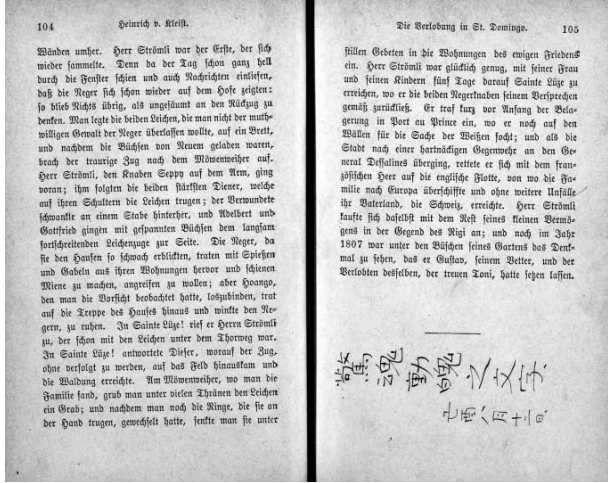 104 Heinrich v. Kleist.
Wänden umher. Herr Strömli war der Erste, der sich
wieder sammelte. Denn da der Tag schon ganz hell
durch die Fenster schien und auch Nachrichten einliefen,
daß die Neger sich schon wieder auf dem Hofe zeigten:
so blieb Nichts übrig, als ungesäumt an den Rückzug zu
denken. Man legte die beiden Leichen, die man nicht der muth-
willigen Gewalt der Neger überlassen wollte, auf ein Brett,
und nachdem die Büchsen von Neuem geladen waren,
brach der traurige Zug nach dem Möwenweiher auf.
Herr Strömli, den Knaben Seppy auf dem Arm, ging
voran; ihm folgten die beiden stärksten Diener, welche
auf ihren Schultern die Leichen trugen; der Verwundete
schwankte an einem Stabe hinterher, und Adelbert und
Gottfried gingen mit gespannten Büchsen dem langsam
fortschreitenden Leichenzuge zur Seite. Die Neger, da
sie den Haufen so schwach erblickten, traten mit Spießen
und Gabeln aus ihren Wohnungen hervor und schienen
Miene zu machen, angreifen zu wollen; aber Hoango,
den man die Vorsicht beobachtet hatte, loszubinden, trat
auf die Treppe des Hauses hinaus und winkte den Ne-
gern, zu ruhen. In Sainte Lüze! rief er Herrn Strömli
zu, der schon mit den Leichen unter dem Thorweg war.
In Sainte Lüze! antwortete Dieser, worauf der Zug,
ohne verfolgt zu werden, auf das Feld hinauskam und
die Waldung erreichte. Am Möwenweiher, wo man die
Familie fand, grub man unter vielen Thränen den Leichen
ein Grab; und nachdem man noch die Ringe, die sie an
der Hand trugen, gewechselt hatte, senkte man sie unter
Die Verlobung in St. Domingo. 105
stillen Gebeten in die Wohnungen des ewigen Friedens
ein. Herr Strömli war glücklich genug, mit seiner Frau
und seinen Kindern fünf Tage darauf Sainte Lüze zu
erreichen, wo er die beiden Negerknaben seinem Versprechen
gemäß zurückließ. Er traf kurz vor Anfang der Bela-
gerung in Port au Prince ein, wo er noch auf den
Wällen für die Sache der Weißen focht; und als die
Stadt nach einer hartnäckigen Gegenwehr an den Ge-
neral Dessalines überging, rettete er sich mit dem fran-
zösischen Heer auf die englische Flotte, von wo die Fa-
milie nach Europa überschiffte und ohne weitere Unfälle
ihr Vaterland, die Schweiz, erreichte. Herr Strömli
kaufte sich daselbst mit dem Rest seines kleinen Vermö-
gens in der Gegend des Rigi an; und noch im Jahr
1807 war unter den Büschen seines Gartens das Denk-
mal zu sehen, das er Gustav, seinem Vetter, und der
Verlobten desselben, der treuen Toni, hatte setzen lassen.
驚魂動魄之文字
乙酉八月十二日